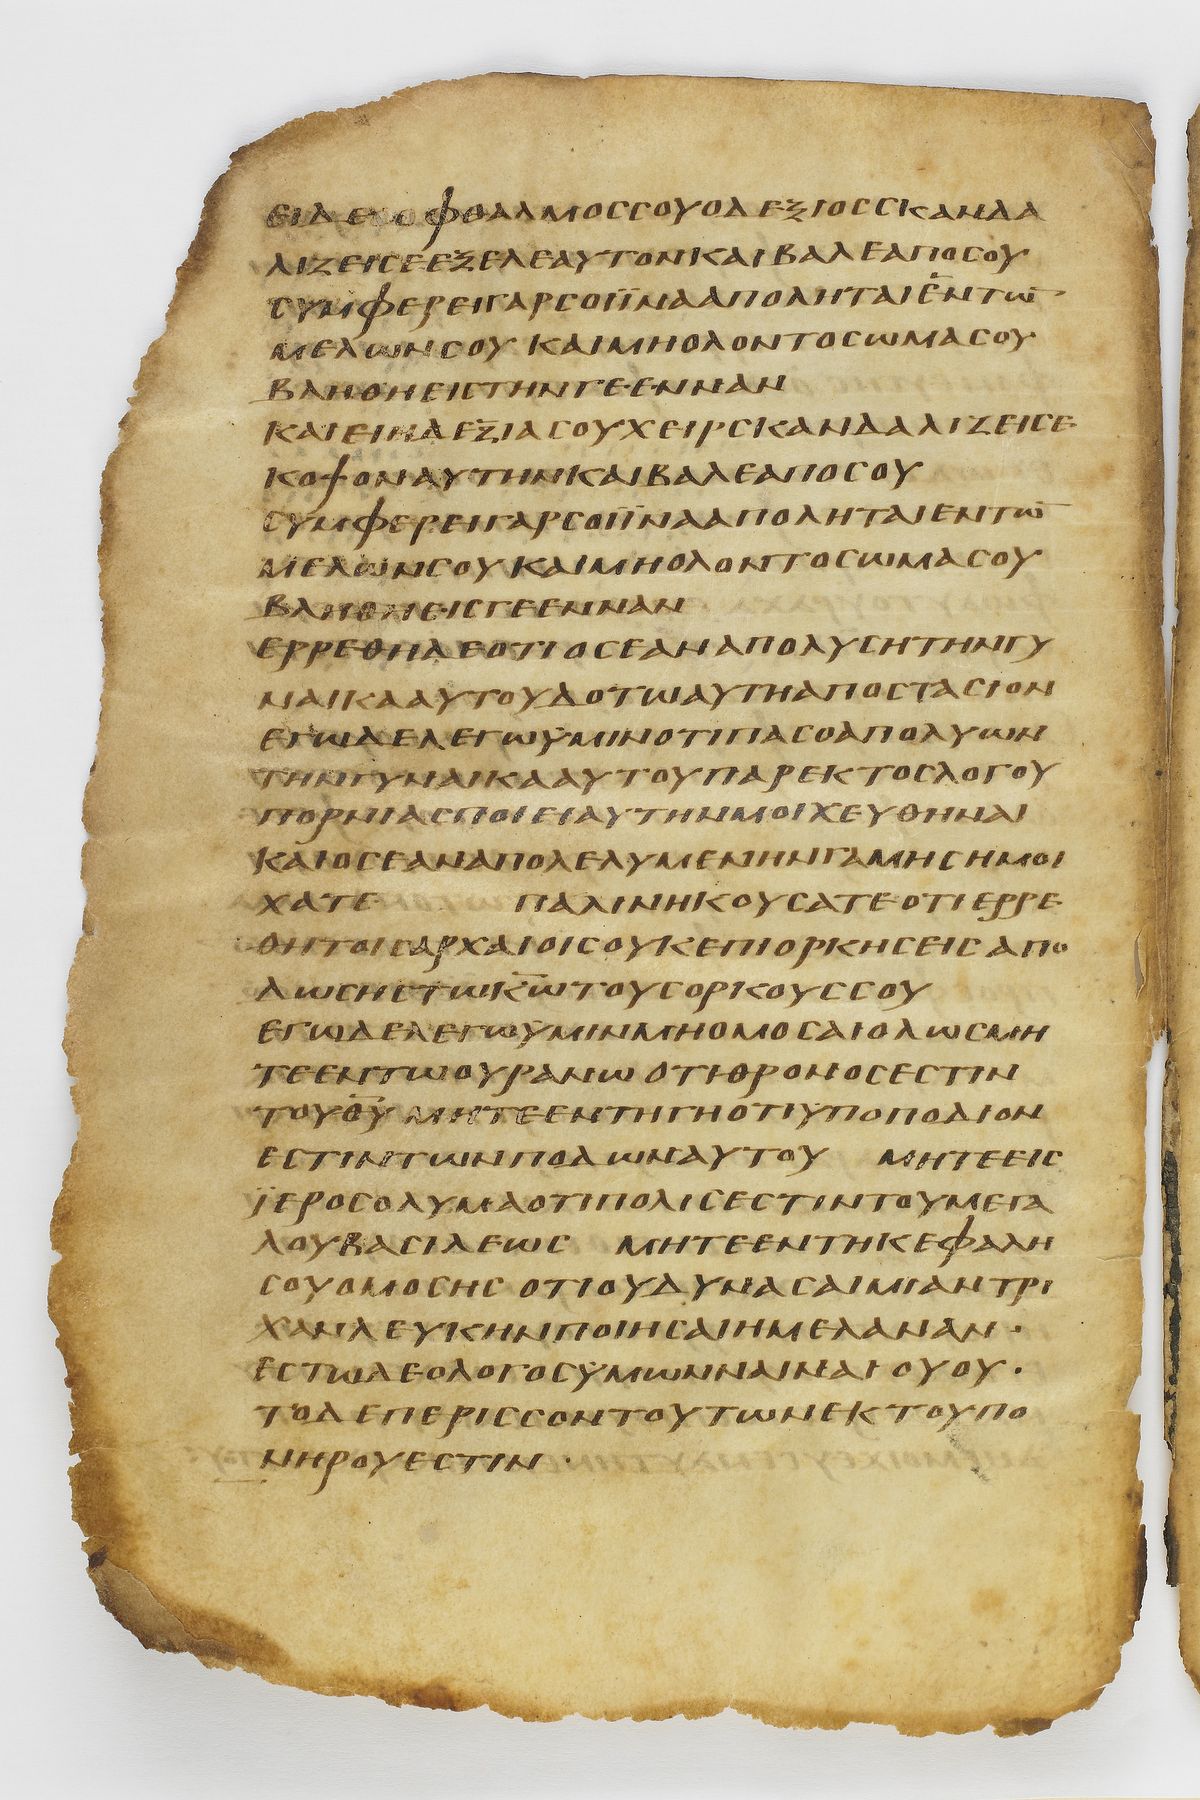 ΕΙΔΕΟΟΦΘΑΛΜΟCCΟΥΟΔΕΞΙΟCCΚΑΝΔΑ
ΛΙΖΕΙCΕΕΞΕΛΕΑΥΤΟΝΚΑΙΒΑΛΕΑΠΟCΟΥ
CΥΜΦΕΡΕΙΓΑΡCΟΙΪΝΑΑΠΟΛΗΤΑΙΕΝΤΩ̅
ΜΕΛΩΝCΟΥ ΚΑΙΜΗΟΛΟΝΤΟCΩΜΑCΟΥ
ΒΛΗΘΗΕΙCΤΗΝΓΕΕΝΝΑΝ
ΚΑΙΕΙΗΔΕΞΙΑCΟΥΧΕΙΡCΚΑΝΔΑΛΙΖΕΙCΕ
ΚΟΨΟΝΑΥΤΗΝΚΑΙΒΑΛΕΑΠΟCΟΥ
CΥΜΦΕΡΕΙΓΑΡCΟΙΪΝΑΑΠΟΛΗΤΑΙΕΝΤΩ̅
ΜΕΛΩΝCΟΥΚΑΙΜΗΟΛΟΝΤΟCΩΜΑCΟΥ
ΒΛΗΘΗΕΙCΓΕΕΝΝΑΝ
ΕΡΡΕΘΗΔΕΟΤΙΟCΕΑΝΑΠΟΛΥCΗΤΗΝΓΥ
ΝΑΙΚΑΑΥΤΟΥΔΟΤΩΑΥΤΗΑΠΟCΤΑCΙΟΝ
ΕΓΩΔΕΛΕΓΩΫΜΙΝΟΤΙΠΑCΟΑΠΟΛΥΩΝ
ΤΗΝΓΥΝΑΙΚΑΑΥΤΟΥΠΑΡΕΚΤΟCΛΟΓΟΥ
ΠΟΡΝΙΑCΠΟΙΕΙΑΥΤΗΝΜΟΙΧΕΥΘΗΝΑΙ
ΚΑΙΟCΕΑΝΑΠΟΛΕΛΥΜΕΝΗΝΓΑΜΗCΗΜΟΙ
ΧΑΤΕ ΠΑΛΙΝΗΚΟΥCΑΤΕΟΤΙΕΡΡΕ
ΘΗΤΟΙCΑΡΧΑΙΟΙCΟΥΚΕΠΙΟΡΚΗCΕΙCΑΠΟ
ΔΩCΗCΤΩΚ̅Ω̅ΤΟΥCΟΡΚΟΥCCΟΥ
ΕΓΩΔΕΛΕΓΩΫΜΙΝΜΗΟΜΟCΑΙΟΛΩCΜΗ
ΤΕΕΝΤΩΟΥΡΑΝΩ ΟΤΙΘΡΟΝΟCΕCΤΙΝ
ΤΟΥΘ̅Υ̅ ΜΗΤΕΕΝΤΗΓΗΟΤΙΫΠΟΠΟΔΙΟΝ
ΕCΤΙΝΤΩΝΠΟΔΩΝΑΥΤΟΥ ΜΗΤΕΕΙC
ΪΕΡΟCΟΛΥΜΑΟΤΙΠΟΛΙCΕCΤΙΝΤΟΥΜΕΓΑ
ΛΟΥΒΑCΙΛΕΩC ΜΗΤΕΕΝΤΗΚΕΦΑΛΗ
CΟΥΟΜΟCΗC ΟΤΙΟΥΔΥΝΑCΑΙΜΙΑΝΤΡΙ
ΧΑΝΛΕΥΚΗΝΠΟΙΗCΑΙΗΜΕΛΑΝΑΝ·
ΕCΤΩΔΕΟΛΟΓΟCΫΜΩΝΝΑΙΝΑΙ ΟΥΟΥ·
ΤΟΔΕΠΕΡΙCCΟΝΤΟΥΤΩΝΕΚΤΟΥΠΟ
ΝΗΡΟΥΕCΤΙΝ·